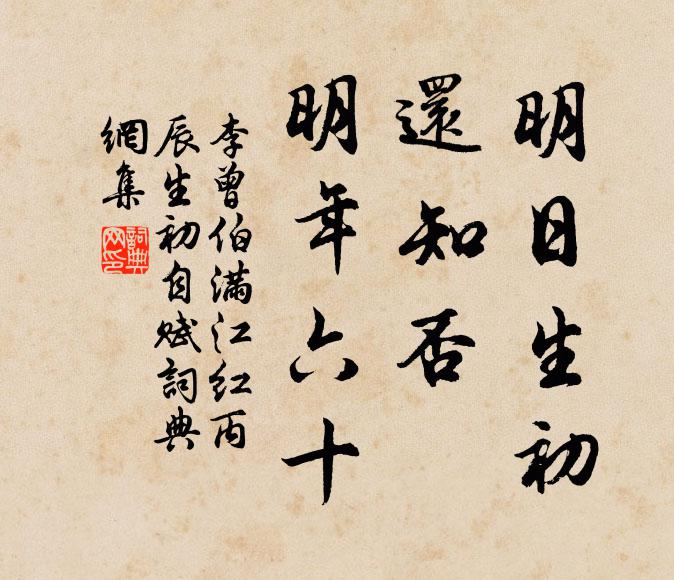 明日生初
還知否
明年六十
李曾伯滿江红丙
辰生初自赋詞典
網集
詞典
网印